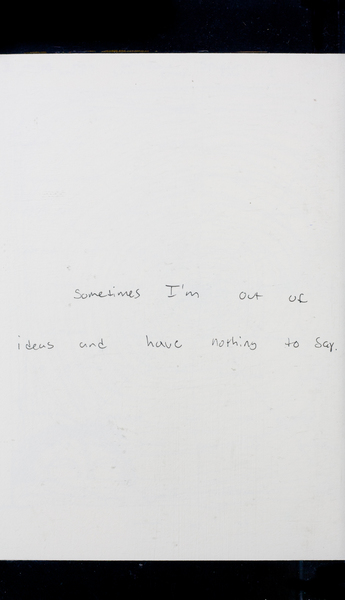 Sometimes I'm out of
ideas and have nothing to say.